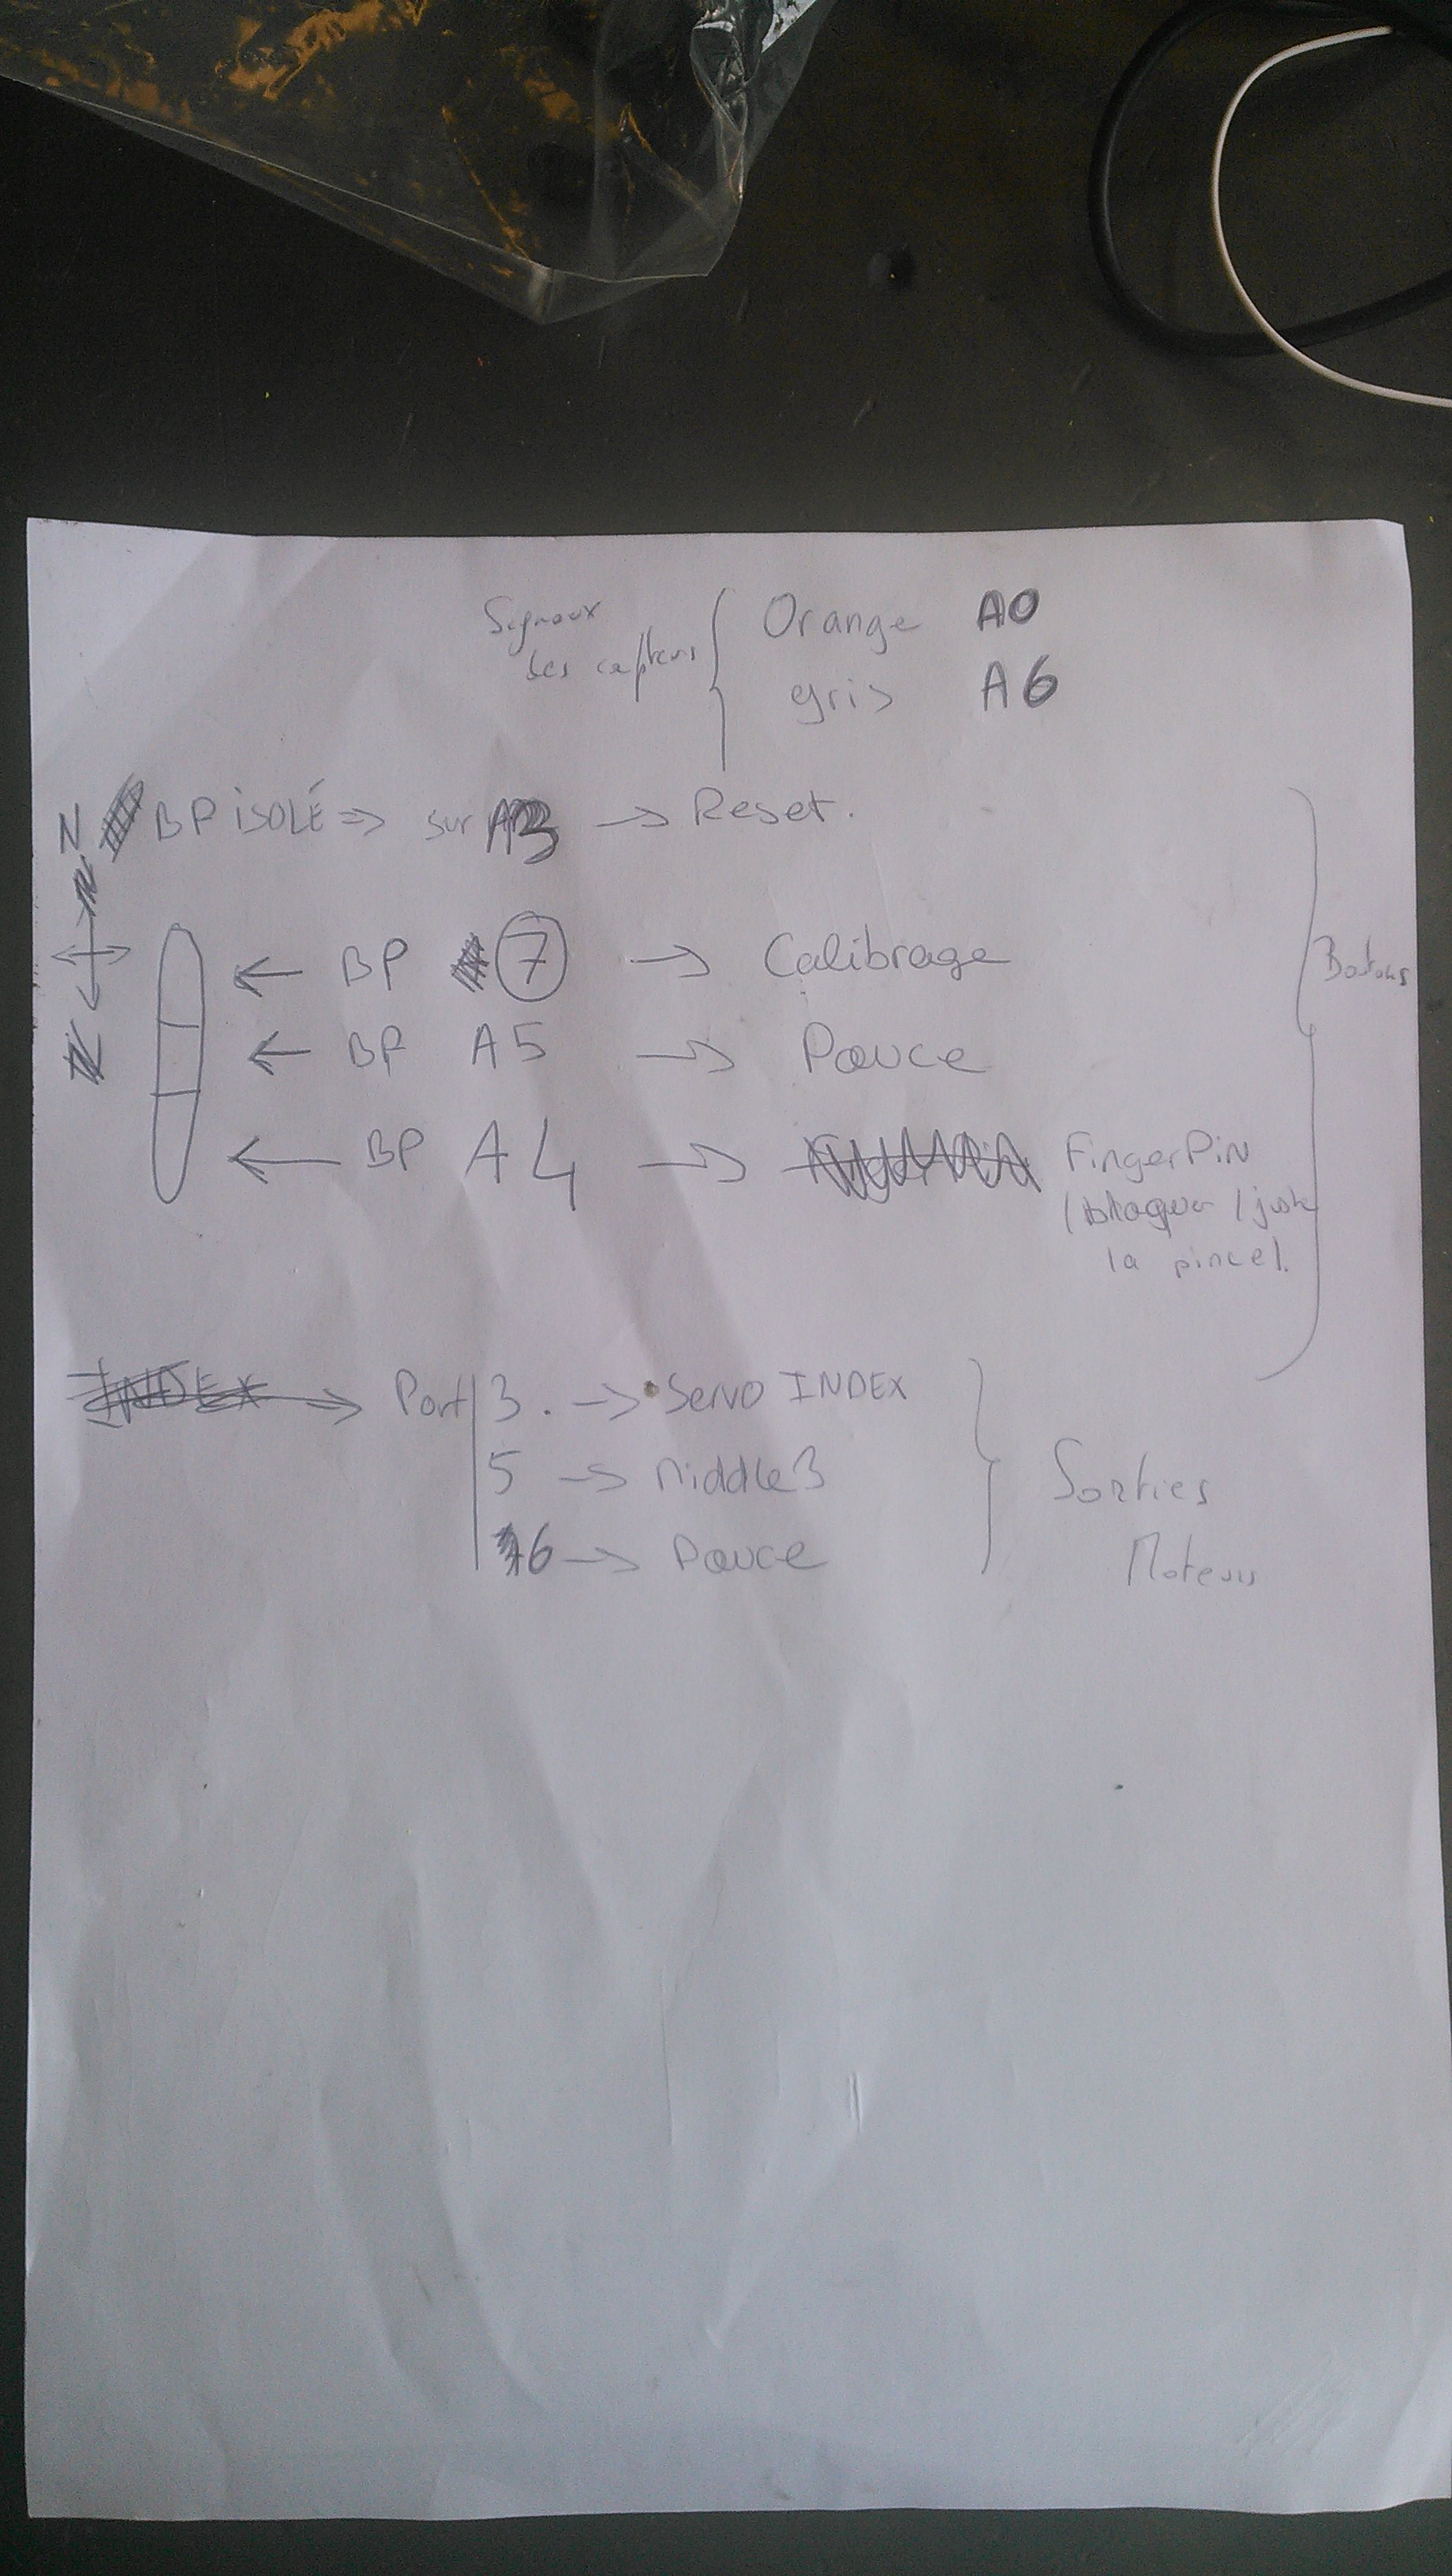 Signaux
des capteurs
Orange A0
gris A6
N
BP iSOLÉ => sur A3 -> Reset.
<- BP 7 -> Calibrage
Boutons
<- BP A5 -> Pouce
<- BP A4 -> FingerPiN
/bloquer / juste
la pince).
INDEX -> Port 3. -> Servo INDEX
5 -> Middle3
6 -> Pouce
Sorties
Moteurs